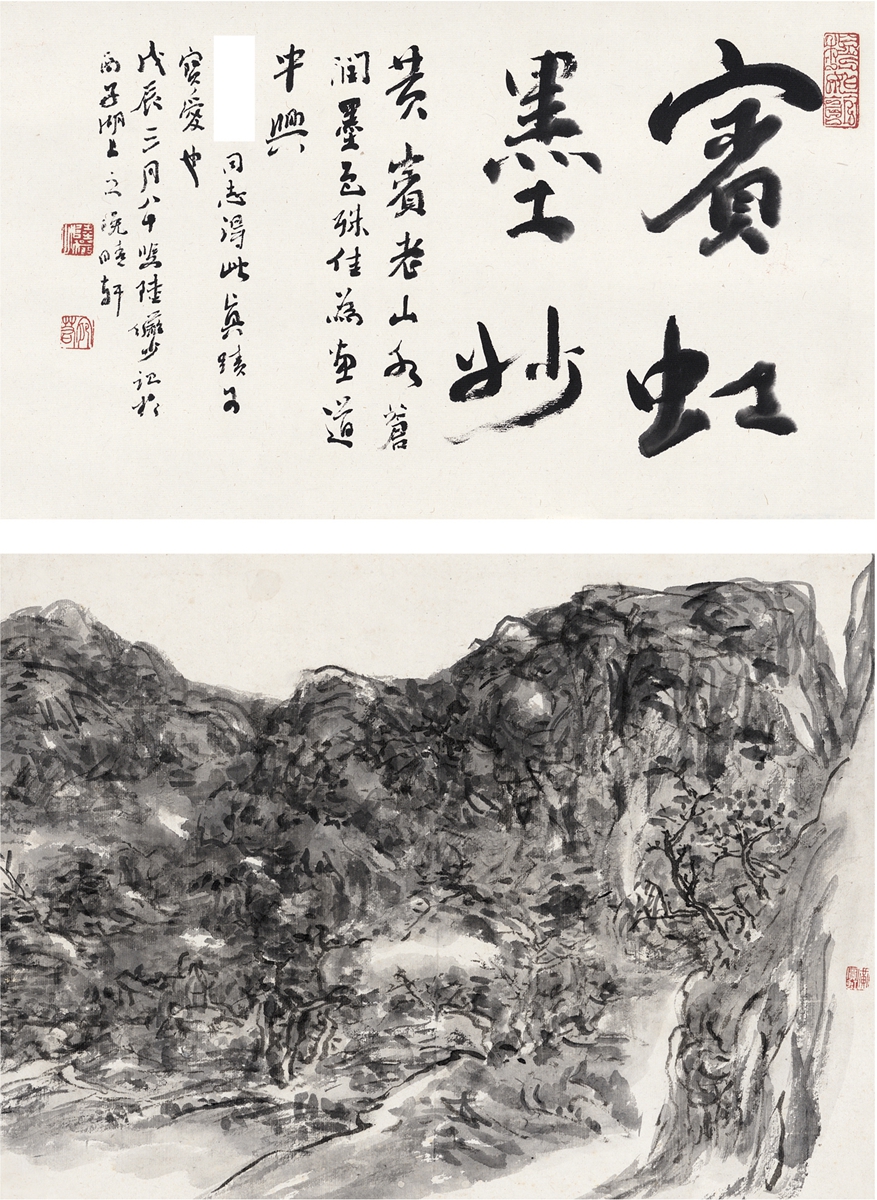 賓虹
墨妙
黄賓老山水蒼
潤墨色殊佳為画道
中興
同志得此真蹟可
寶愛也
戊辰三月八十叟陸儼少記於
西子湖上之晚晴軒